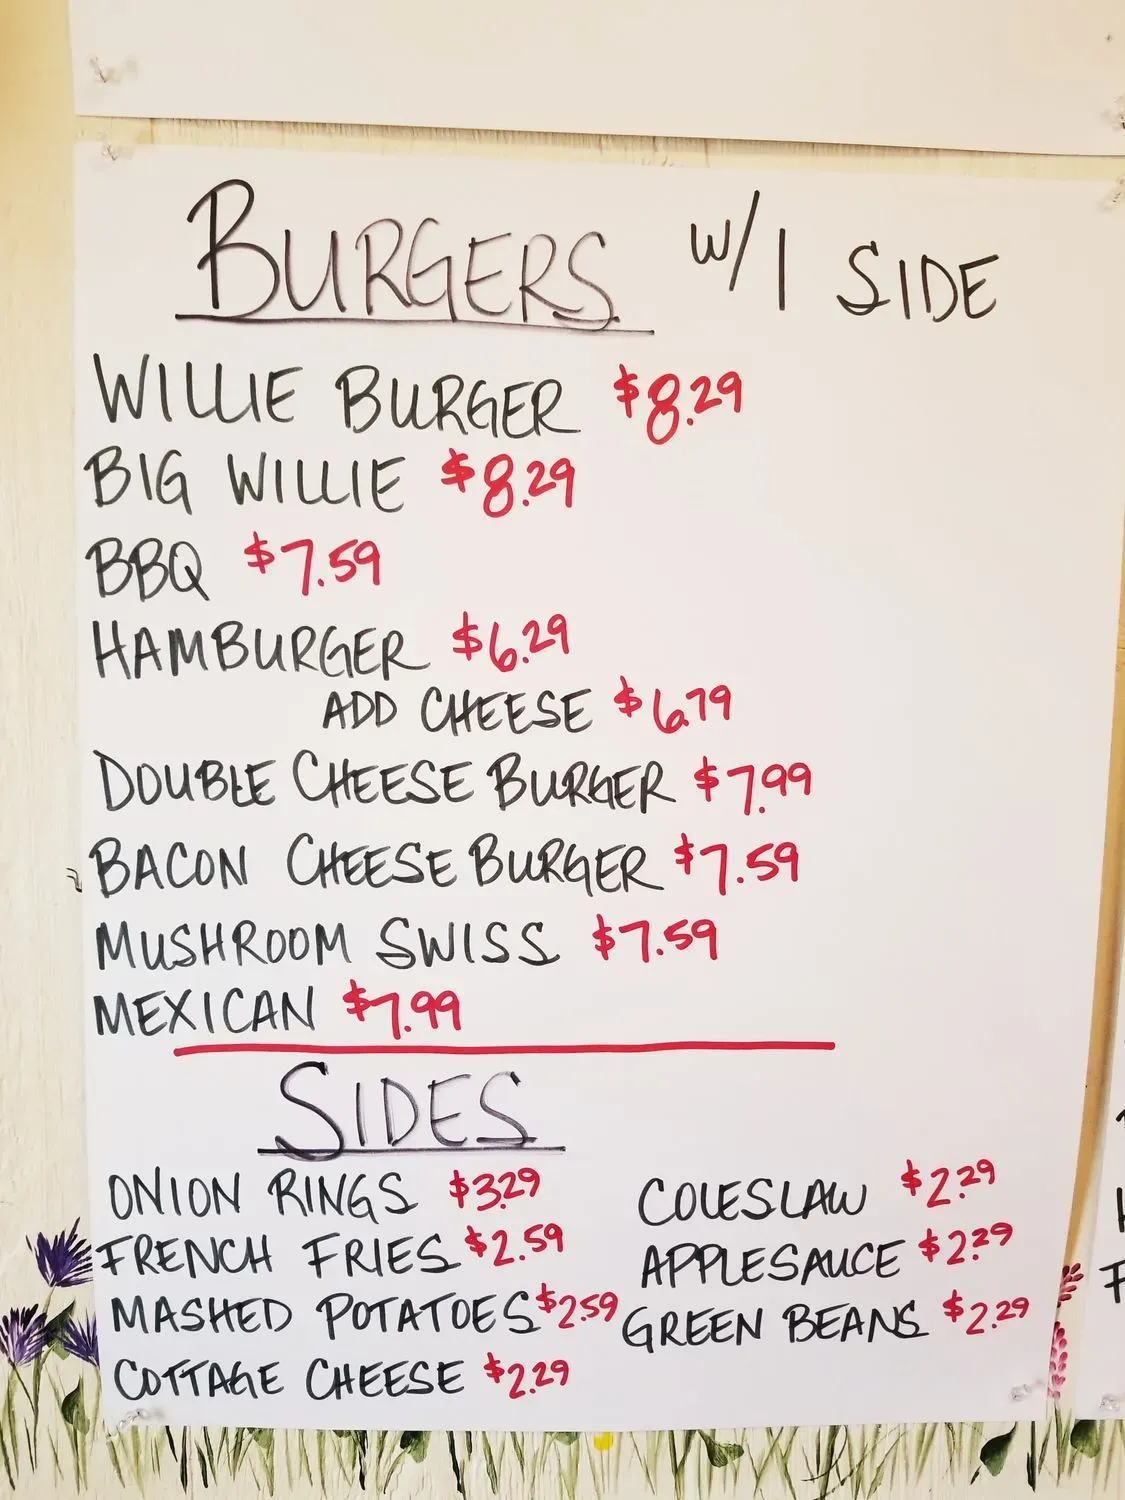 BURGERS w/1 SIDE
WILLIE BURGER $8.29
BIG WILLIE $8.29
BBQ $7.59
HAMBURGER $6.29
ADD CHEESE $6.79
DOUBLE CHEESE BURGER $7.99
BACON CHEESE BURGER $7.59
MUSHROOM SWISS $7.59
MEXICAN $7.99
SIDES
ONION RINGS $3.29
FRENCH FRIES $2.59
MASHED POTATOES $2.59
COTTAGE CHEESE $2.29
COLESLAW $2.29
APPLESAUCE $2.29
GREEN BEANS $2.29